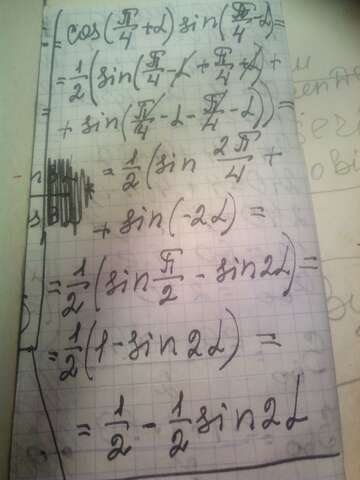 cos(π/4+α) sin(π/4-α)=
=1/2(sin(π/4-α+π/4+α)+
+ sin(π/4-α-π/4-α))=
=1/2(sin 2π/4 +
+ sin(-2α) =
=1/2(sin π/2 - sin2α)=
=1/2(1-sin2α) =
= 1/2 - 1/2 sin2α